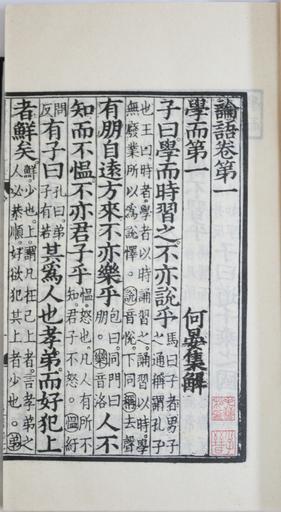 論語卷第一
學而第一
何晏集解
子曰學而時習之不亦說乎
馬曰子者男子
之通稱謂孔子
也王曰時者學者以時誦習之誦習以時學
無廢業所以爲說懌說音悅下同稱去聲
有朋自遠方來不亦樂乎
包曰同門曰
朋樂音洛
人不
知而不慍不亦君子乎
慍怒也凡人有所不
知君子不怒慍紆
問
反
有子曰
孔曰弟
子有若
其爲人也孝弟而好犯上
者鮮矣
鮮少也上謂凡在己上者言孝弟之
人必恭順好欲犯其上者少也弟